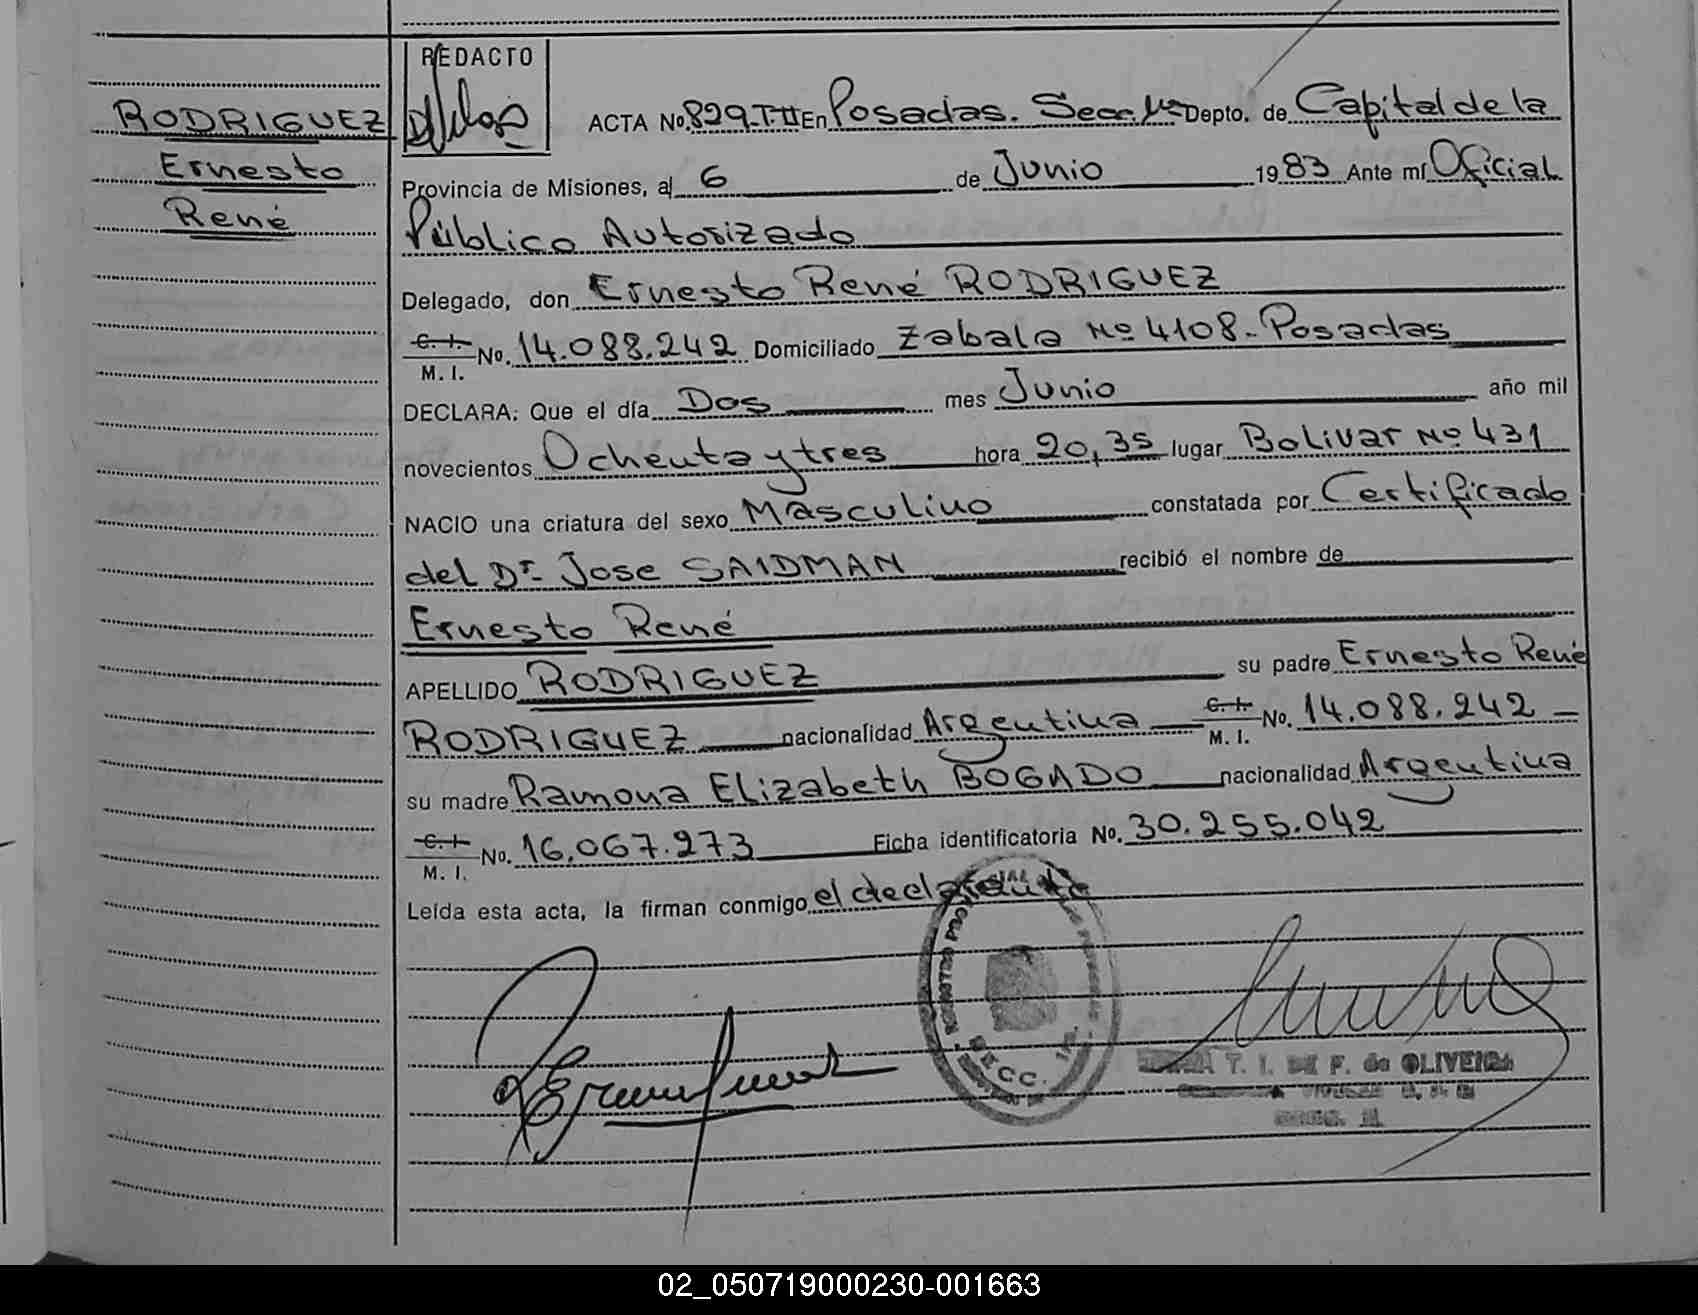 REDACTO
RODRIGUEZ
Ernesto
René
ACTA No. 829 T II En Posadas. Secc. 1ª Depto. de Capital de la
Provincia de Misiones, al 6 de Junio 1983 Ante mí Oficial
Público Autorizado
Delegado, don Ernesto René RODRIGUEZ
C. I. M. I. No. 14.088.242 Domiciliado Zabala Nº 4108 - Posadas
DECLARA: Que el día Dos mes Junio año mil
novecientos Ochenta y tres hora 20,35 lugar Bolivar Nº 431
NACIO una criatura del sexo Masculino constatada por Certificado
del Dr. Jose SAIDMAN recibió el nombre de
Ernesto René
APELLIDO RODRIGUEZ su padre Ernesto René
RODRIGUEZ nacionalidad Argentina C. I. M. I. No. 14.088.242
su madre Ramona Elizabeth BOGADO nacionalidad Argentina
C. I. M. I. No. 16.067.273 Ficha identificatoria No. 30.255.042
Leída esta acta, la firman conmigo el declarante
SECC.
T. I. DE F. de OLIVEIRA
02_050719000230-001663